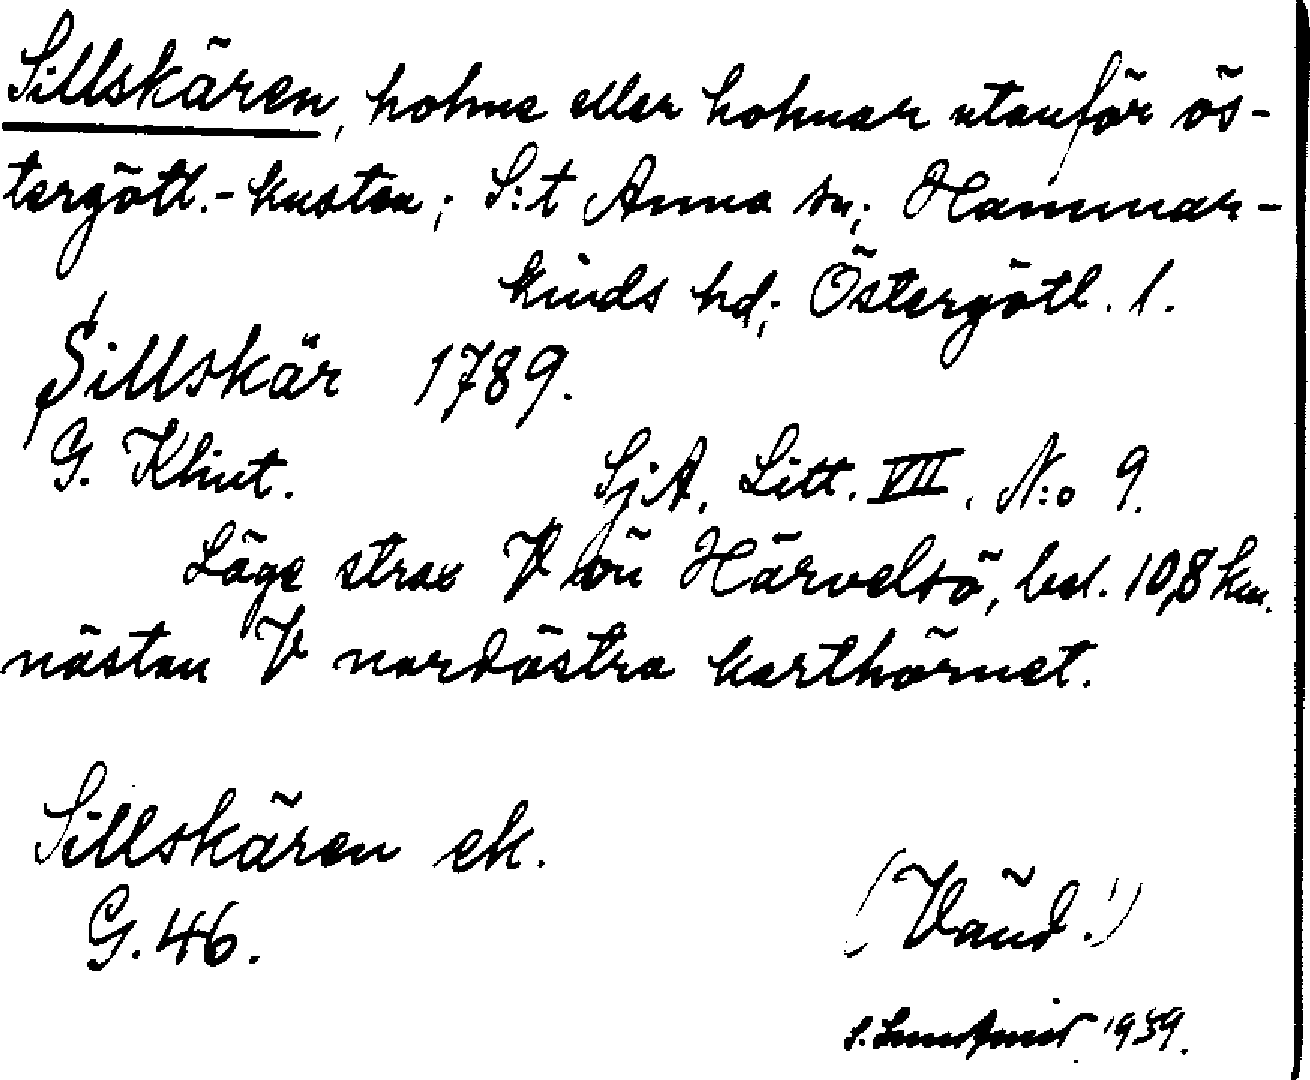 Sillskären, holme eller holmar utanför ös-
tergötl.-kusten; S:t Anna sn; Hammar-
kinds hd; Östergötl. l.
Sillskär 1789.
G. Klint. SjA. Litt. VII. N:o 9.
Läge strax V om Härvelsö, bel. 10,8 km.
nästan V nordöstra karthörnet.
Sillskären ek.
G. 46. (Vänd!)
S. Lundqvist 1939.